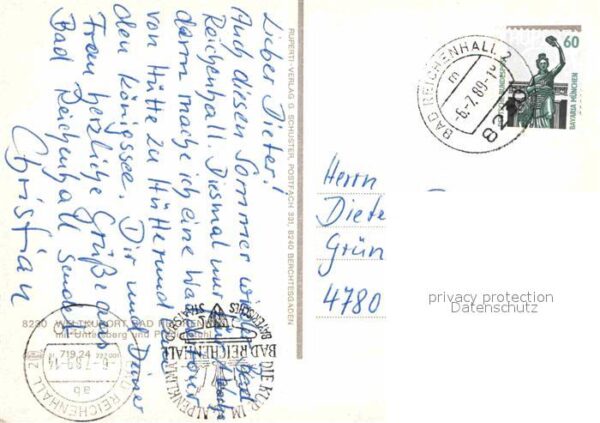 Lieber Dieter!
Auch diesen Sommer wieder Bad
Reichenhall. Diesmal nur
dann mache ich eine Wandertour
von Hütte zu Hütte rund um
den Königssee. Dir und Deiner
Frau herzliche Grüße aus
Bad Reichenhall sendet
Christian
RUPERTI-VERLAG G. SCHUSTER, POSTFACH 331, 8240 BERCHTESGADEN
8230 WELTKURORT BAD REICHENHALL
mit Untersberg und
BAD REICHENHALL 2
-6.7.89-14
ab
719 24
BAYERISCHES STAATSBAD
DIE KUR IM ALPENKLIMA
BAD REICHENHALL
BAD REICHENHALL 2
m
-6.7.89-1
8230
60
DEUTSCHE BUNDESPOST
BAVARIA MÜNCHEN
Herrn
Diete
Grün
4780
privacy protection
Datenschutz